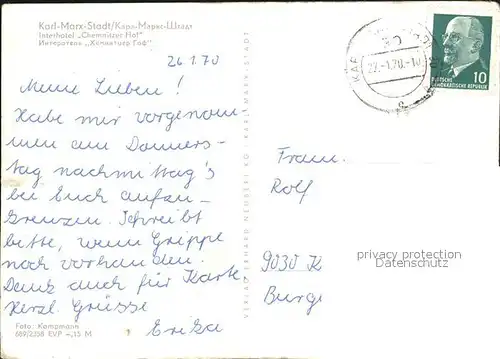 Karl-Marx-Stadt/Карл-Маркс-Штадт
Interhotel „Chemnitzer Hof"
Интеротель „Хемнитцер Гоф"
26.1.70
Meine Lieben!
Habe mir vorgenom-
men am Donners-
tag nachmittag's
bei Euch aufzu-
kreuzen. Schreibt
bitte, wenn Grippe
noch vorhanden.
Dank auch für Karte
Herzl. Grüsse
Erika
Foto: Kampmann
589/2358 EVP -,15 M
VERLAG ERHARD NEUBERT KG KARL-MARX-STADT
KAR
27.-1.70.-10
DEUTSCHE
DEMOKRATISCHE REPUBLIK
10
Frau
Rolf
9030 K
Burg
privacy protection
Datenschutz